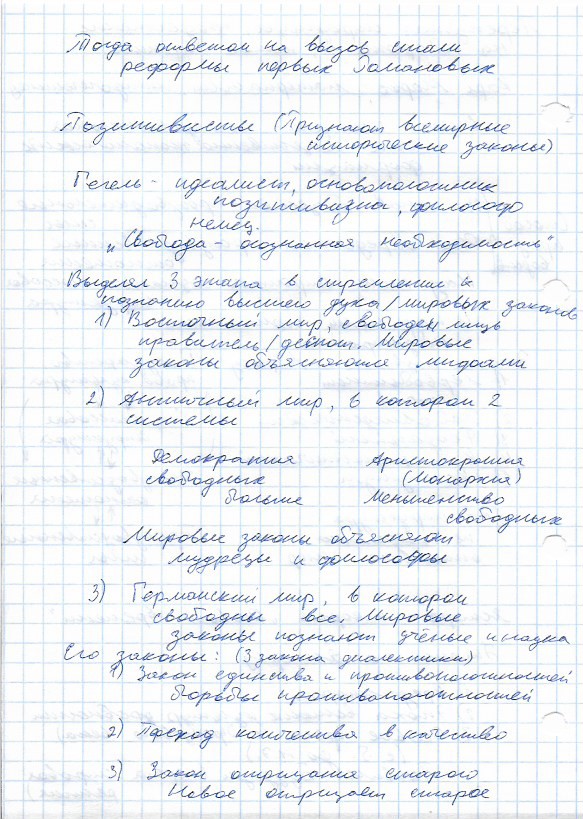 Тогда ответом на вызов стали
реформы первых Романовых
Позитивисты (Признают всемирные
исторические законы)
Гегель - идеалист, основоположник
позитивизма, философ
немец.
„Свобода - осознанная необходимость"
Выделял 3 этапа в стремлении к
познанию высшего духа/мировых законов
1) Восточный мир, свободен лишь
правитель/деспот. Мировые
законы объясняются мифами
2) Античный мир, в котором 2
системы
Демократия Аристократия
свободных (Монархия)
больше Меньшенство
свободных
Мировые законы объясняют
мудрецы и философы
3) Германский мир, в котором
свободны все. Мировые
законы познают учёные и наука
Его законы: (3 закона диалектики)
1) Закон единства и противоположностей
борьбы противоположностей
2) Переход количества в качество
3) Закон отрицания старого
Новое отрицает старое